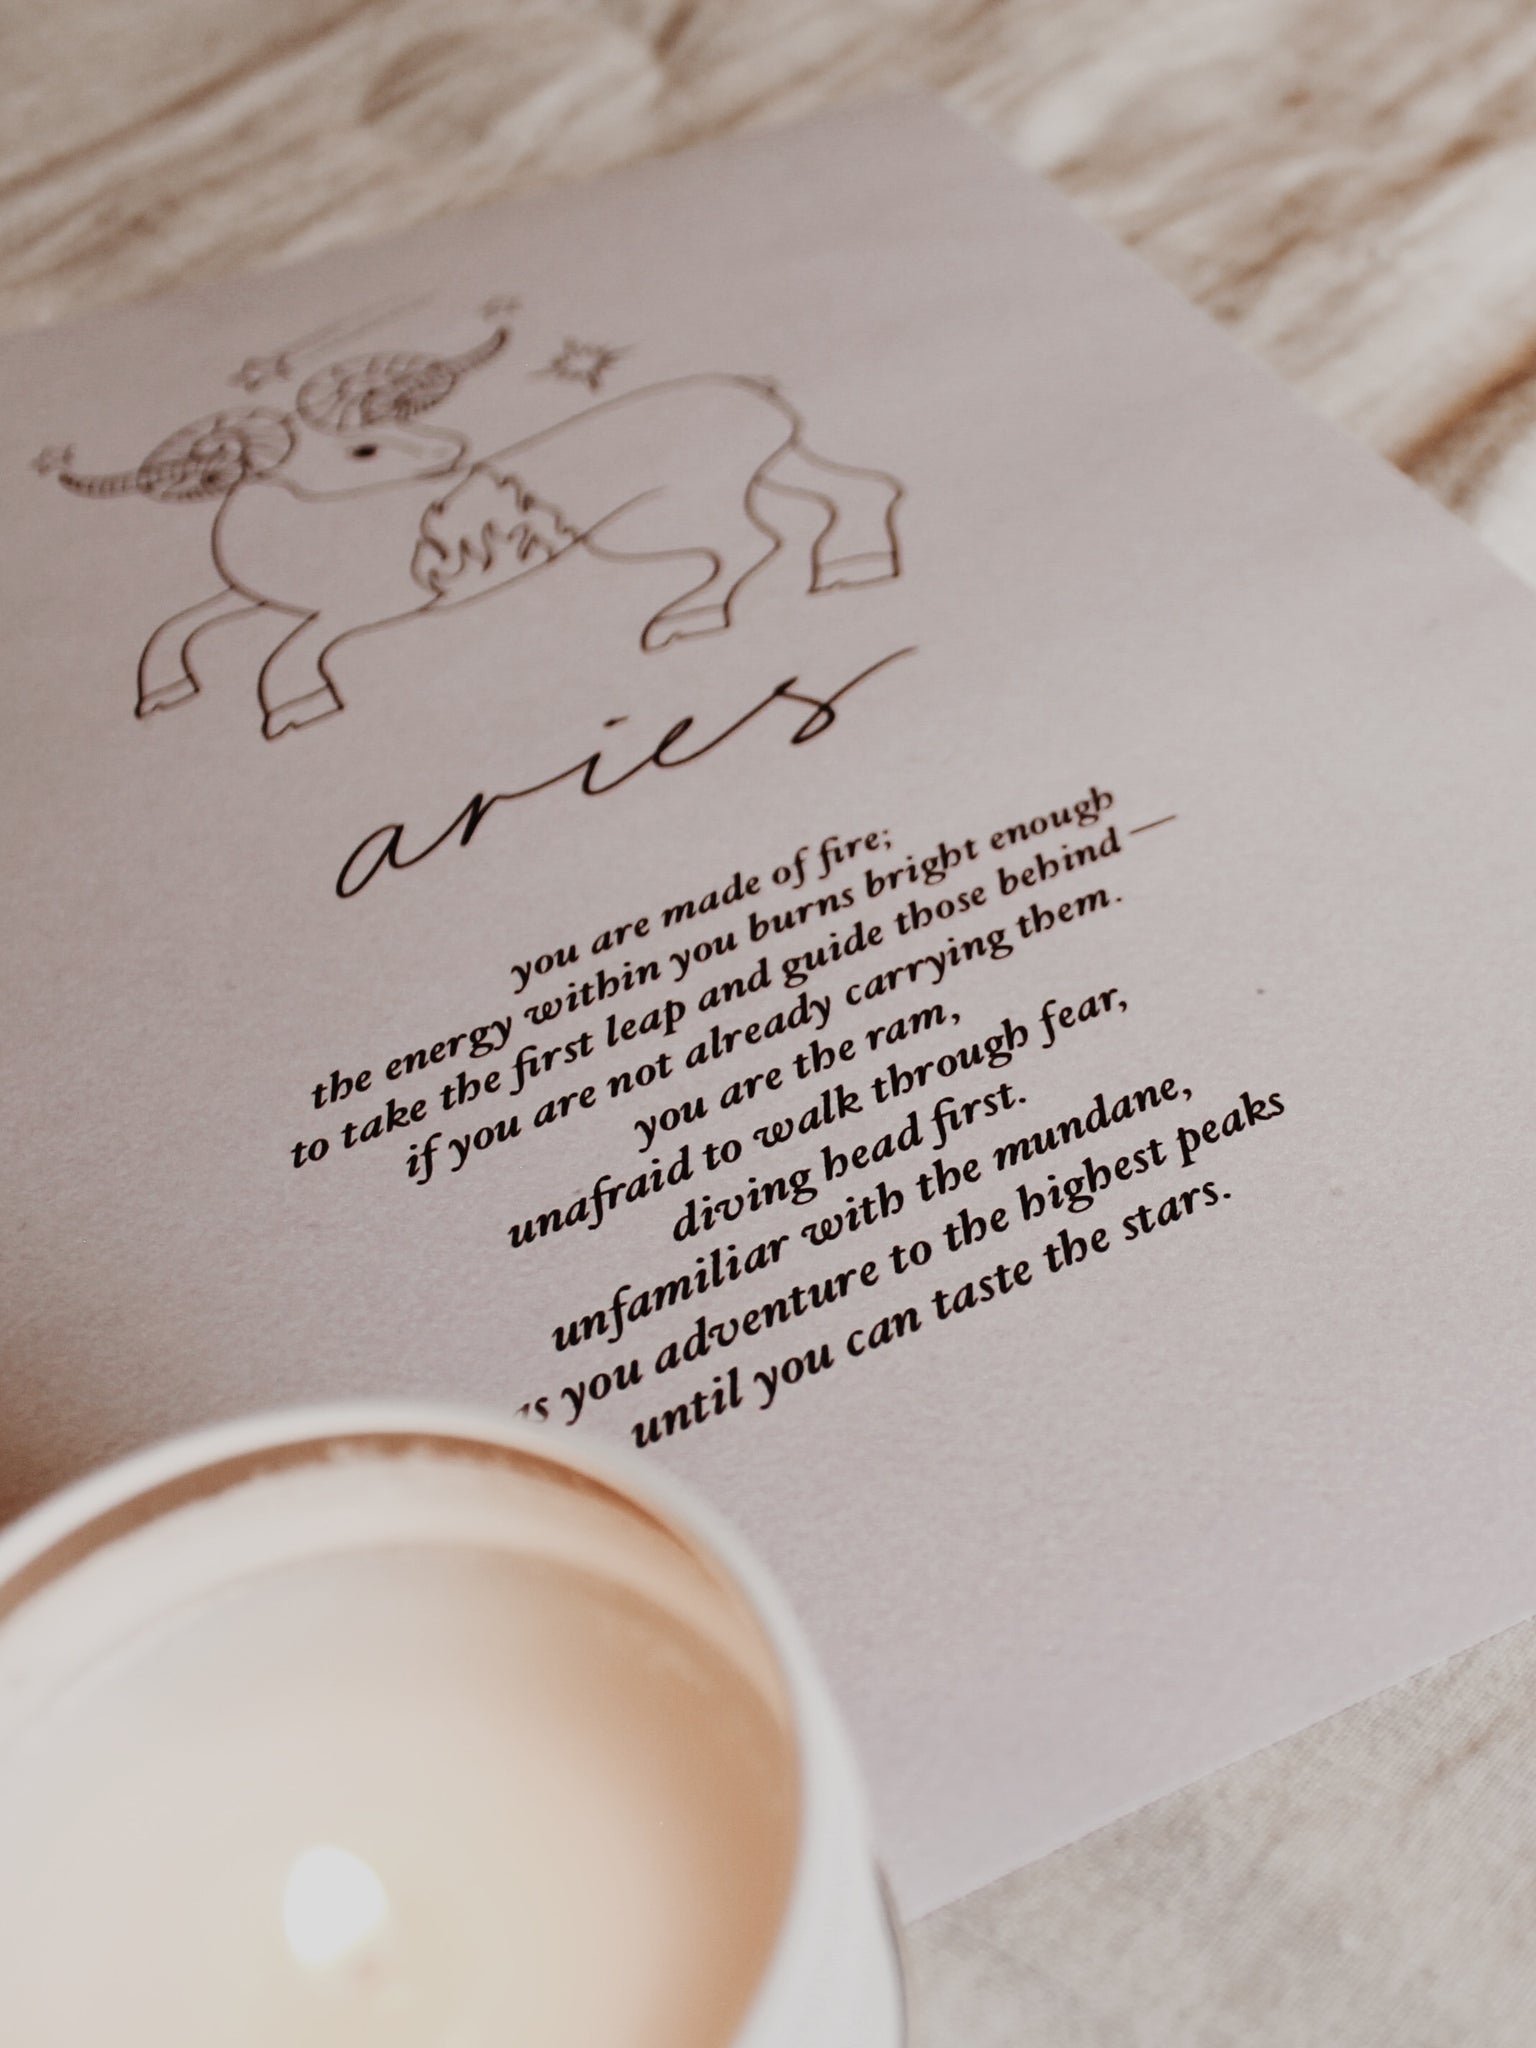 aries
you are made of fire;
the energy within you burns bright enough
to take the first leap and guide those behind —
if you are not already carrying them.
you are the ram,
unafraid to walk through fear,
diving head first.
unfamiliar with the mundane,
as you adventure to the highest peaks
until you can taste the stars.